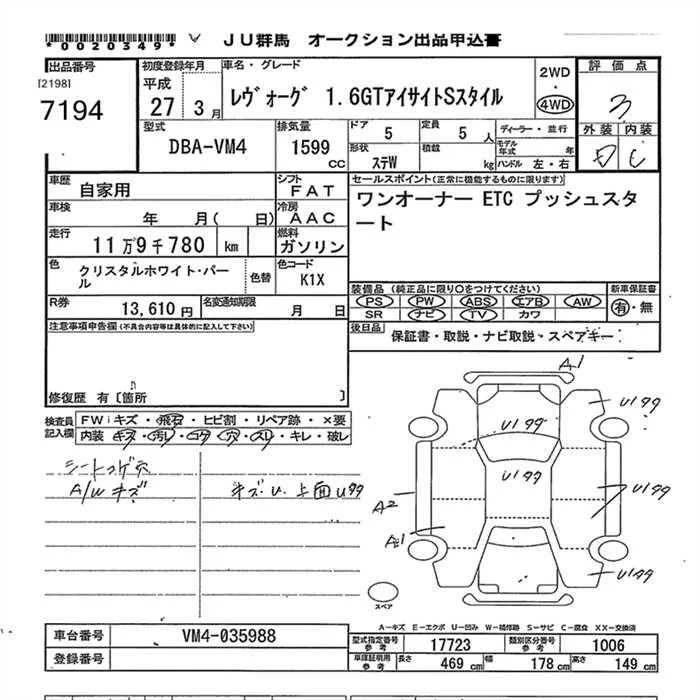 *0020349* JU群馬 オークション出品申込書
出品番号 [2198] 7194
初度登録年月 平成 27 3月
車名・グレード レヴォーグ 1.6GTアイサイトSスタイル
2WD 4WD
評価点 3
外装 内装 D C
型式 DBA-VM4
排気量 1599 CC
ドア 5 定員 5人
形状 ステW 積載 kg
ディーラー・並行
モデル年式 年
ハンドル 左・右
車歴 自家用
シフト FAT
車検 年 月( 日)
冷房 AAC
走行 11万9千780 km
燃料 ガソリン
色 クリスタルホワイト・パール 色替
色コード K1X
R券 13,610円 名変通知期限 月 日
セールスポイント(正常に機能するものに限ります)
ワンオーナー ETC プッシュスタート
装備品 (純正品に限り○をつけてください)
PS PW ABS エアB AW
SR ナビ TV カワ
新車保証書 有・無
後日品 保証書・取説・ナビ取説・スペアキー
注意事項申告欄(不具合内容等は具体的に記入して下さい)
修復歴 有〔箇所 〕
検査員記入欄
FWiキズ・飛石・ヒビ割・リペア跡・×要
内装 キズ・汚レ・コゲ・穴・スレ・キレ・破レ
シートコゲ穴
A/W キズ キズ・U. 上面U99
A1
U199
U199
U199
A2
U199
A1
U199
スペア
A-キズ E-エクボ U-凹み W-補修跡 S-サビ C-腐食 XX-交換済
車台番号 VM4-035988
登録番号
型式指定番号参考 17723 類別区分番号参考 1006
車庫証明用参考 長さ 469 cm 幅 178 cm 高さ 149 cm